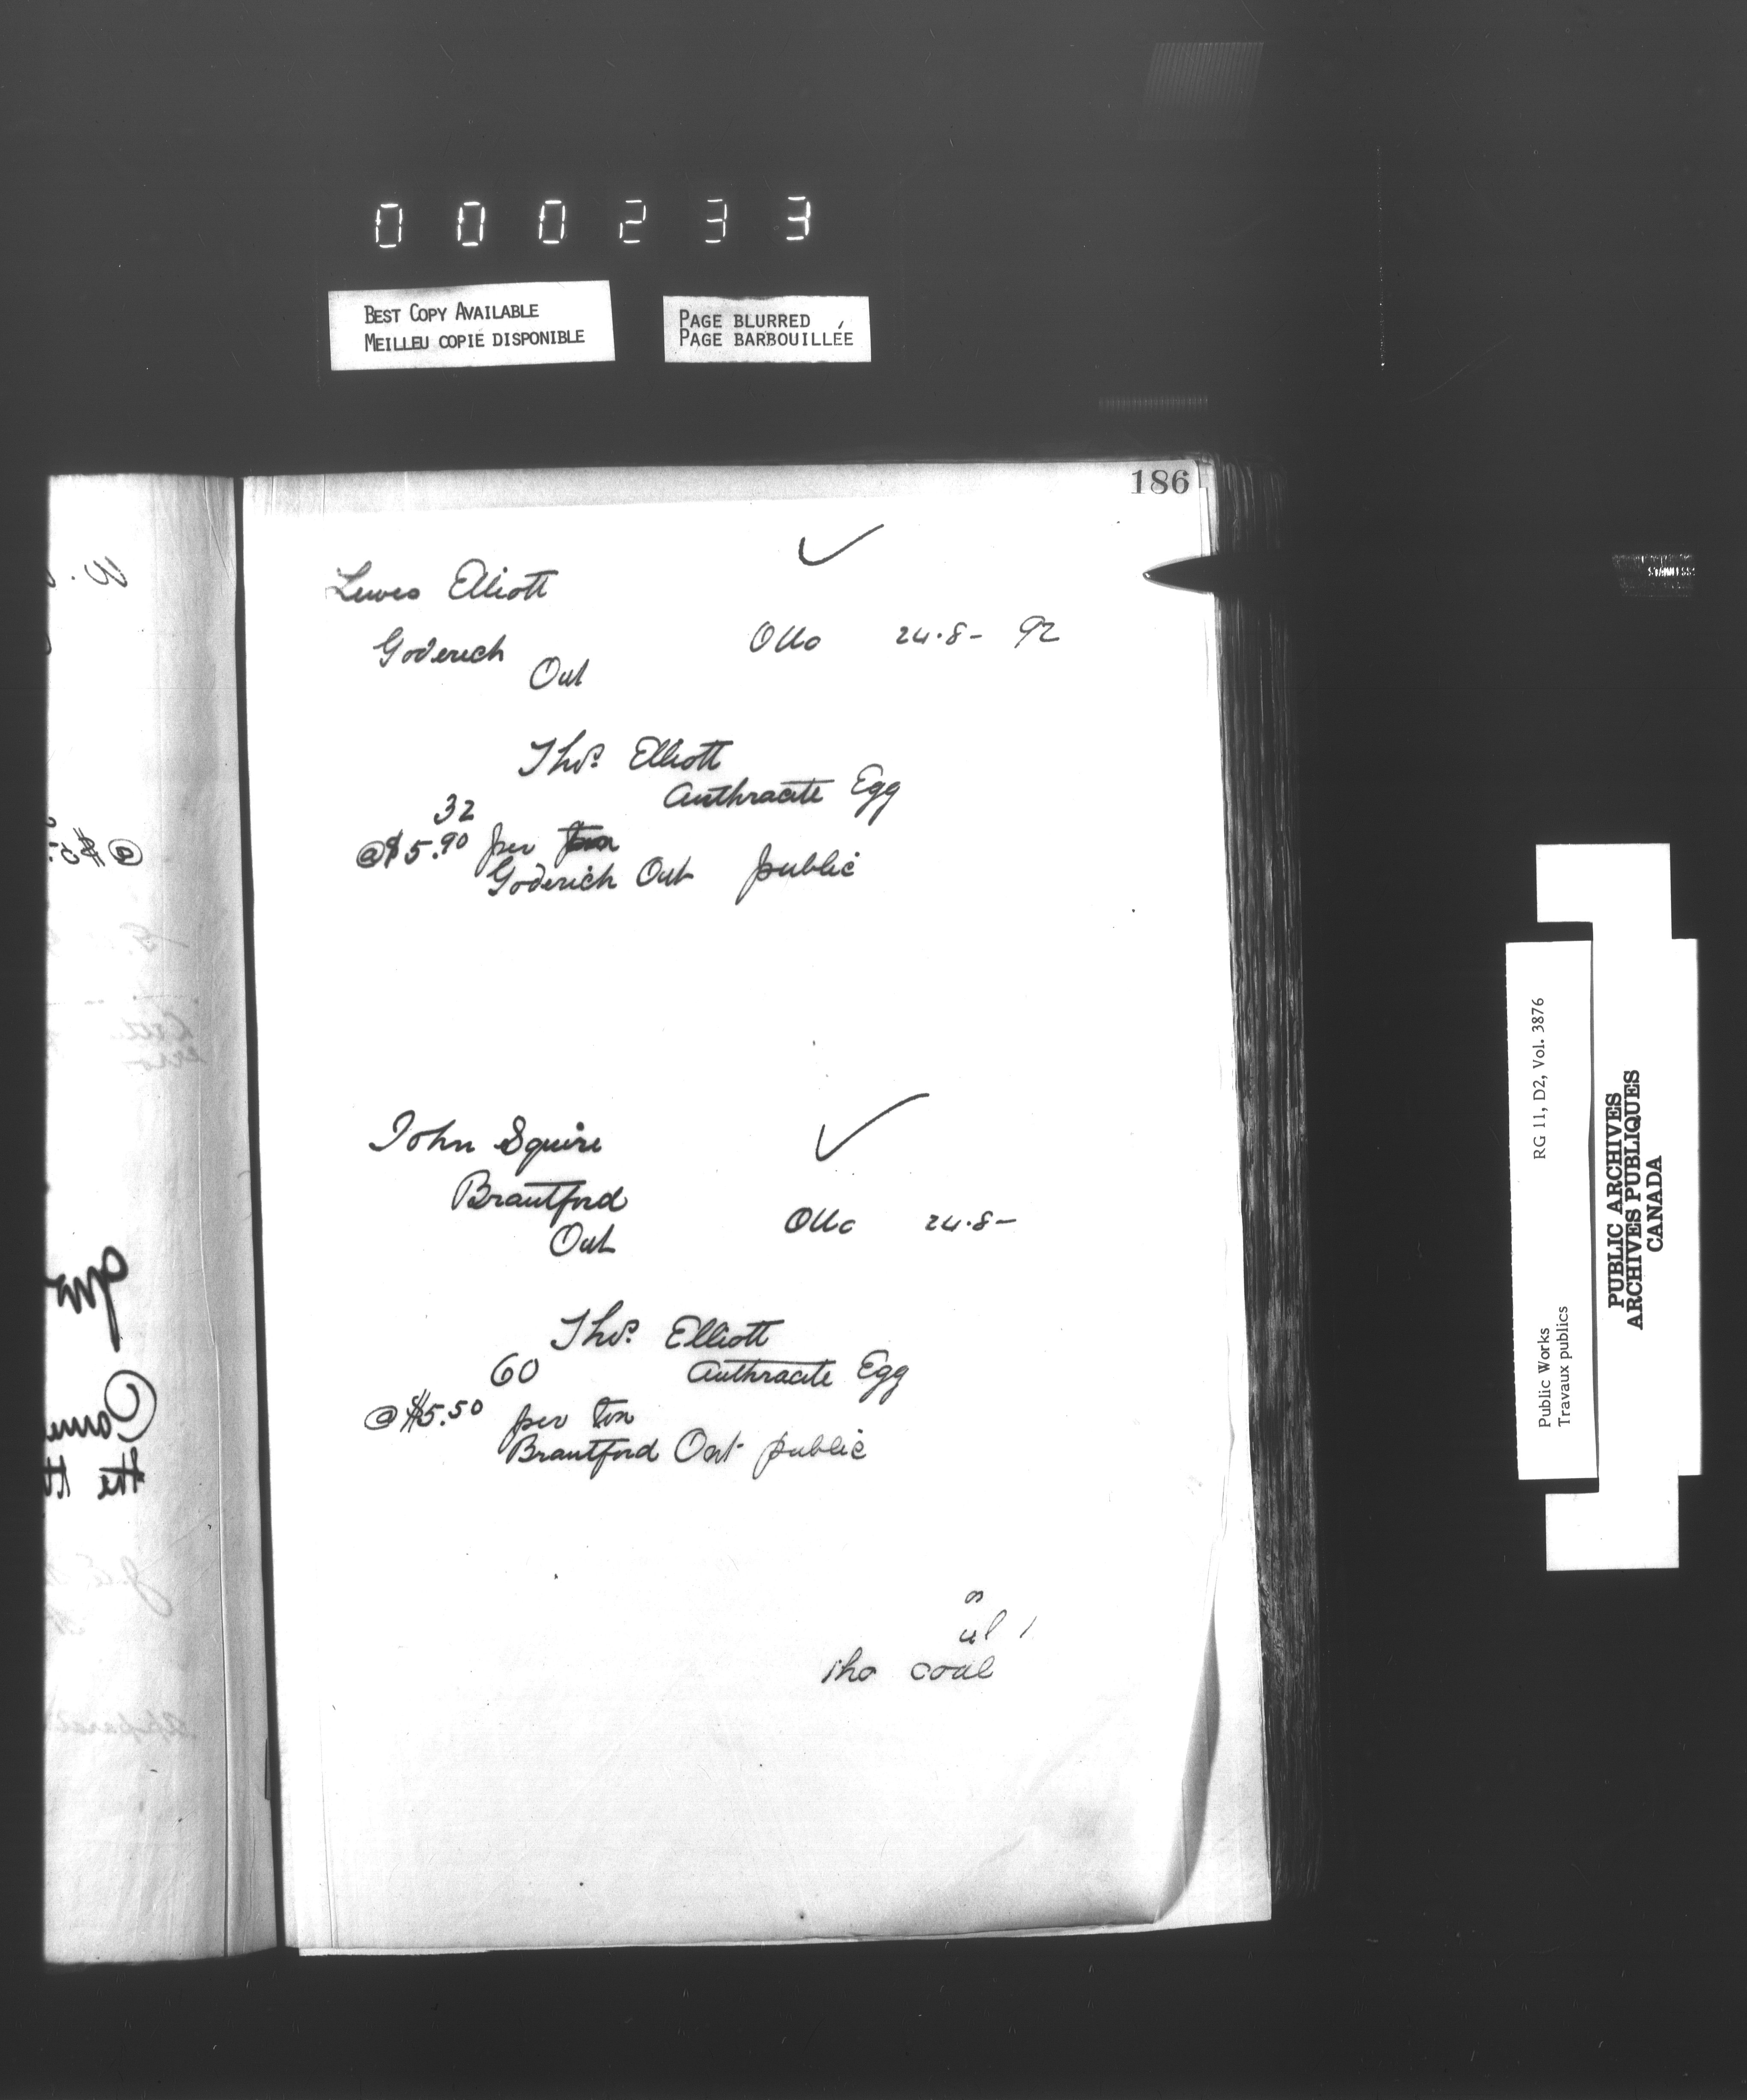 000233
BEST COPY AVAILABLE
MEILLEU COPIE DISPONIBLE
PAGE BLURRED
PAGE BARBOUILLÉE
186
✓
Lewes Elliott
Goderich
Ont
Otto 24.8- 92
Thos. Elliott
32 Anthracite Egg
@ $5.90 per ton
Goderich Ont public
John Squire ✓
Brantford
Ont
Otto 24.8-
Thos. Elliott
60 Anthracite Egg
@ $5.50 per ton
Brantford Ont public
coal
RG 11, D2, Vol. 3876
Public Works
Travaux publics
PUBLIC ARCHIVES
ARCHIVES PUBLIQUES
CANADA